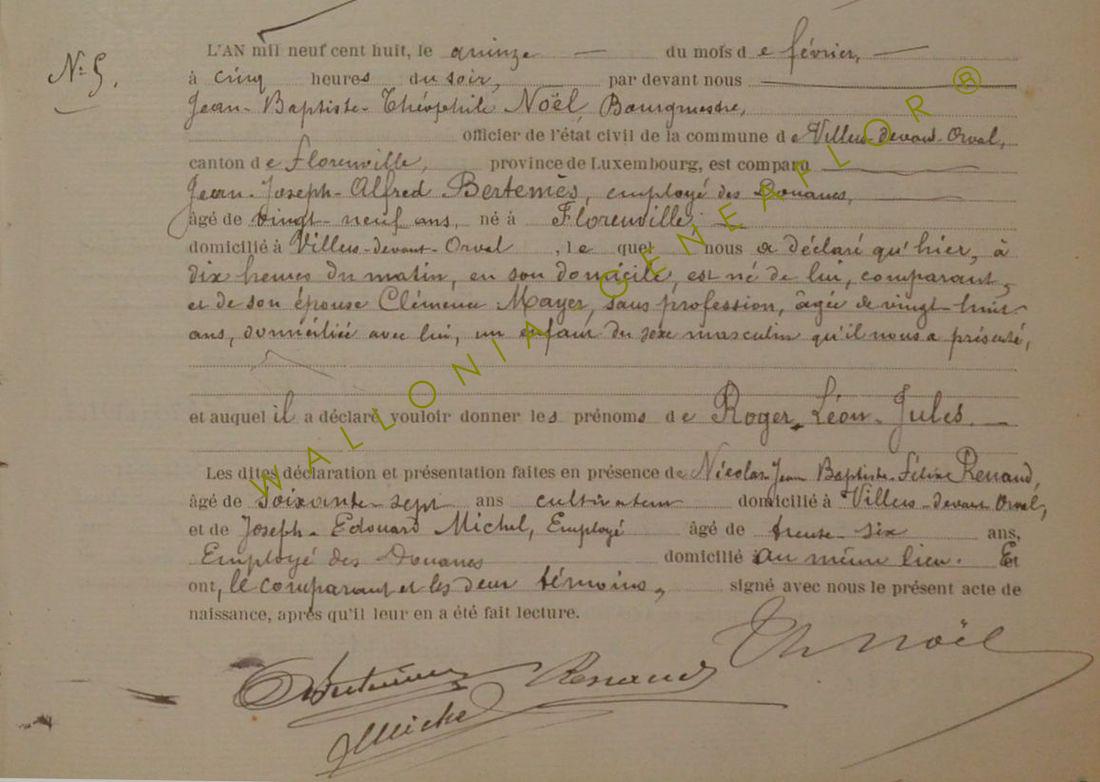 Nº 5.
L'AN mil neuf cent huit, le quinze — du mois de février, —
à cinq heures du soir, par devant nous
Jean-Baptiste-Théophile Noël, Bourgmestre,
officier de l'état civil de la commune de Villers-devant-Orval,
canton de Florenville, province de Luxembourg, est comparu
Jean-Joseph-Alfred Bertemès, employé des Douanes,
âgé de vingt-neuf ans, né à Florenville,
domicilié à Villers-devant-Orval, lequel nous a déclaré qu'hier, à
dix heures du matin, en son domicile, est né de lui, comparant,
et de son épouse Clémence Mayer, sans profession, âgée de vingt-huit
ans, domiciliée avec lui, un enfant du sexe masculin qu'il nous a présenté,
et auquel il a déclaré vouloir donner les prénoms de Roger, Léon-Jules. —
Les dites déclaration et présentation faites en présence de Nicolas-Jean Baptiste- Renaud,
âgé de soixante-sept ans cultivateur domicilié à Villers-devant Orval,
et de Joseph-Edouard Michel, Employé âgé de trente-six ans,
Employé des Douanes domicilié au même lieu. Et
ont, le comparant et les deux témoins, signé avec nous le présent acte de
naissance, après qu'il leur en a été fait lecture.
Th Noël
Renaud
Michel
WALLONIA GENEAPLOR ®